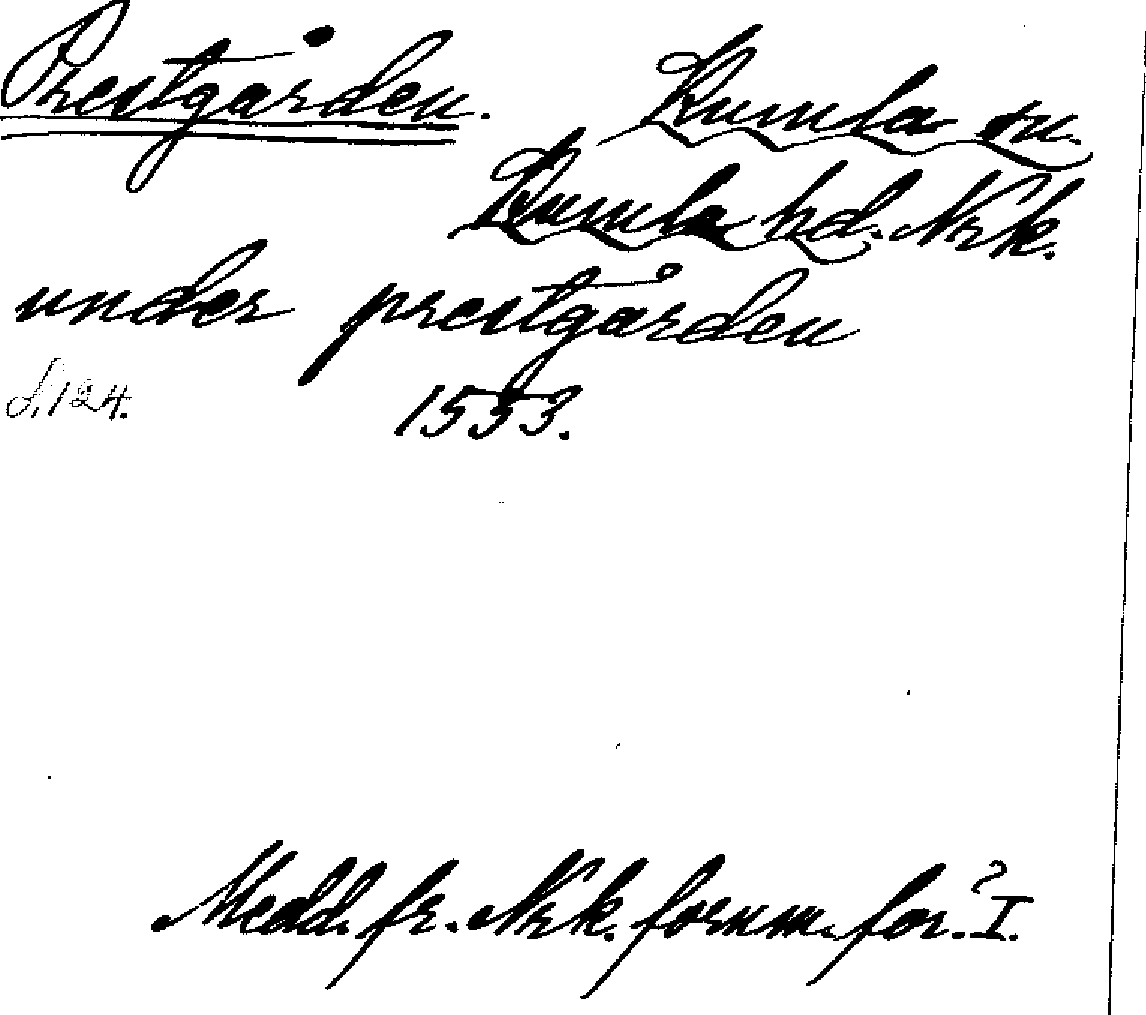 Prestgården. Kumla sn.
Kumla hd. Nrk.
under prestgården
S. 124. 1553.
Medd. fr. Nrk. fornm. för. I.